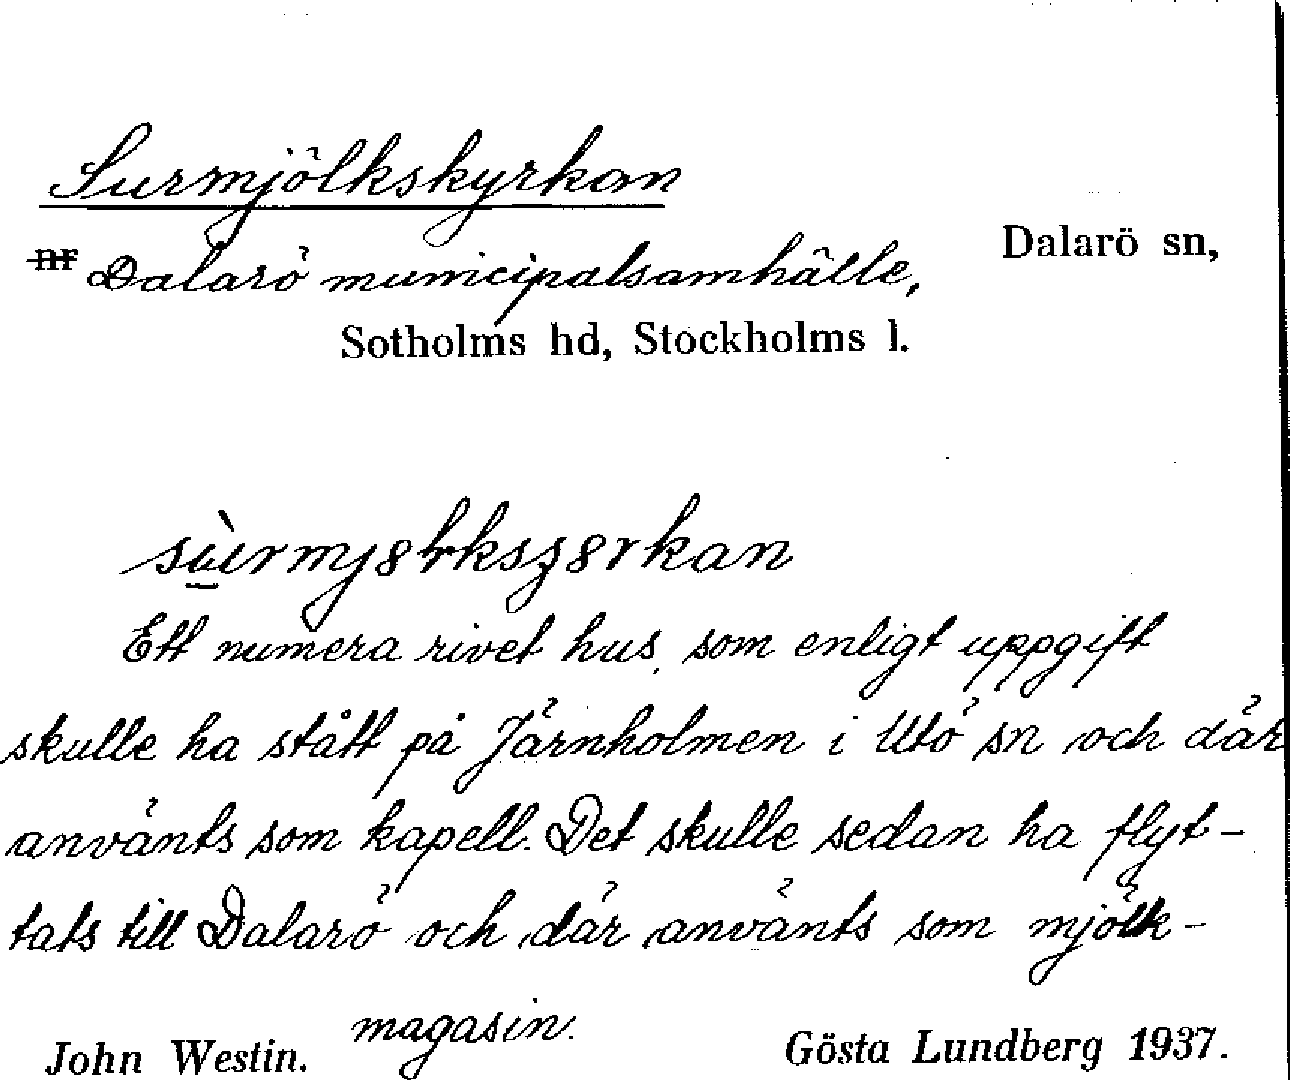 Surmjölkskyrkan
nr Dalarö municipalsamhälle, Dalarö sn,
Sotholms hd, Stockholms l.
Ett numera rivet hus, som enligt uppgift
skulle ha stått på Järnholmen i Utö sn och där
använts som kapell. Det skulle sedan ha flyt-
tats till Dalarö och där använts som mjölk-
magasin.
John Westin. Gösta Lundberg 1937.